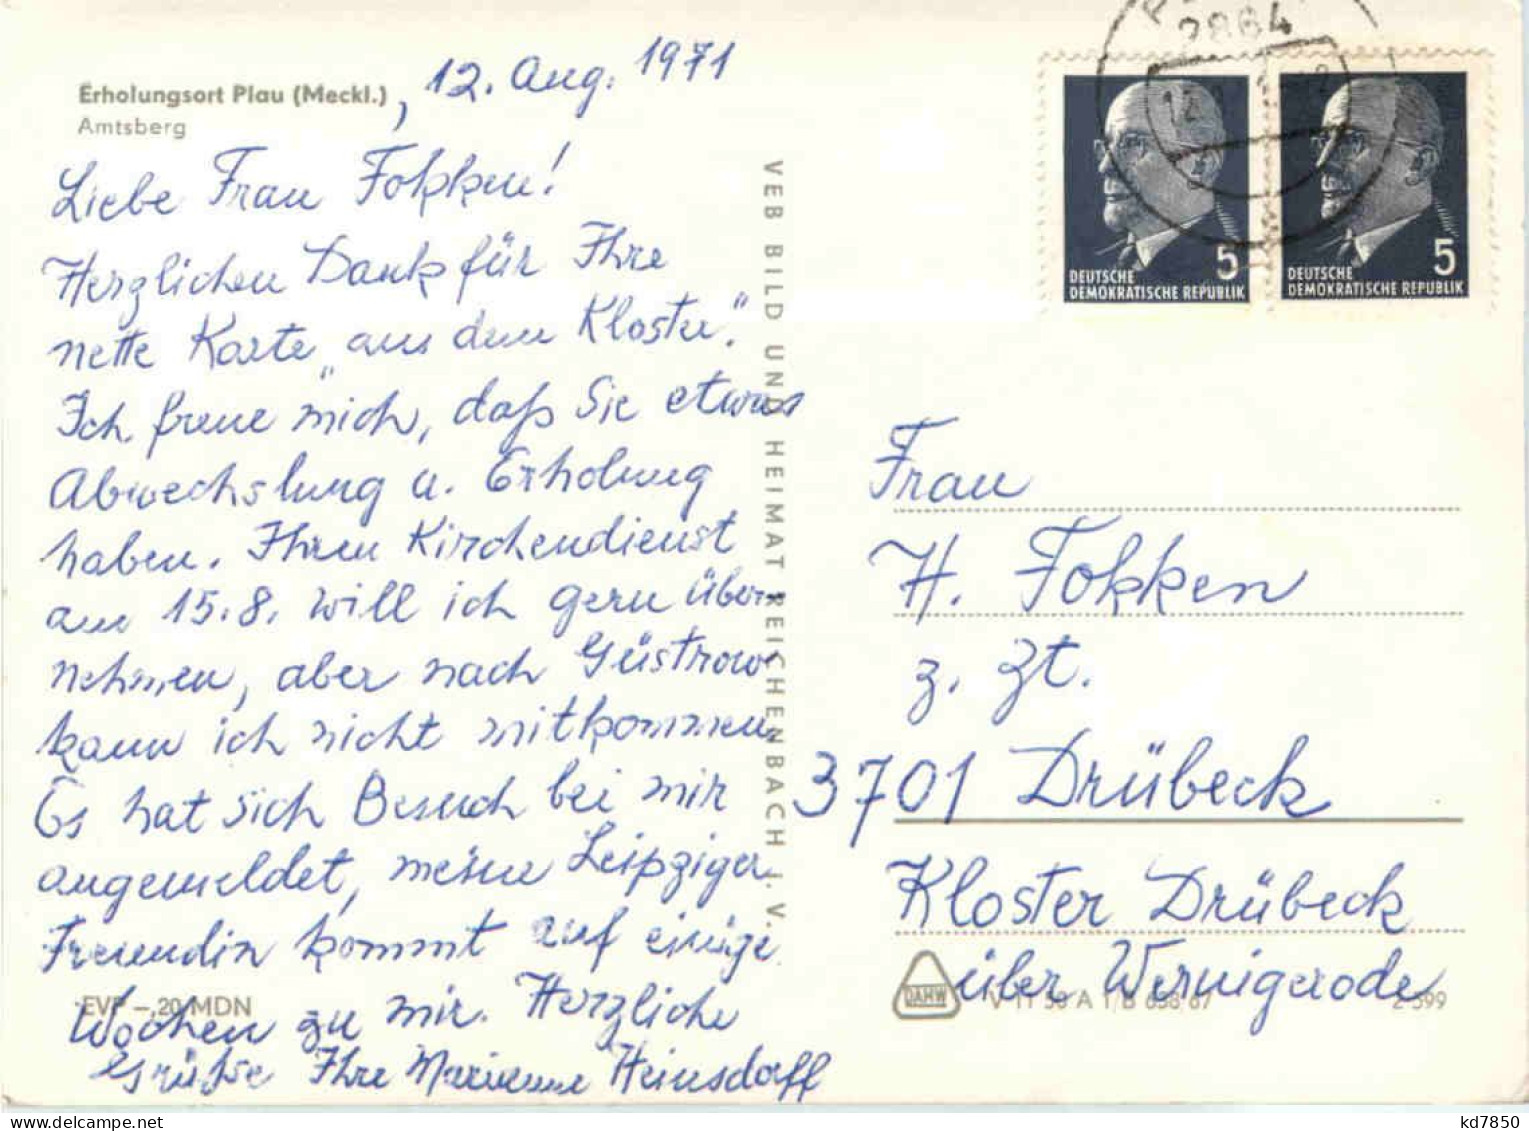 Erholungsort Plau (Meckl.), 12. Aug. 1971
Amtsberg
Liebe Frau Fokken!
Herzlichen Dank für Ihre
nette Karte „aus dem Kloster".
Ich freue mich, daß Sie etwas
Abwechslung u. Erholung
haben. Ihren Kirchendienst
am 15.8. will ich gern über-
nehmen, aber nach Güstrow
kann ich nicht mitkommen.
Es hat sich Besuch bei mir
angemeldet, meine Leipziger
Freundin kommt auf einige
Wochen zu mir. Herzliche
Grüße Ihre Marianne Heinsdorff
EVP –,20 MDN
VEB BILD UND HEIMAT REICHENBACH I. V.
2864
5
DEUTSCHE
DEMOKRATISCHE REPUBLIK
5
DEUTSCHE
DEMOKRATISCHE REPUBLIK
Frau
H. Fokken
z. Zt.
3701 Drübeck
Kloster Drübeck
über Wernigerode
DAHW
V 11 50 A 1/B 638/67
kd7850